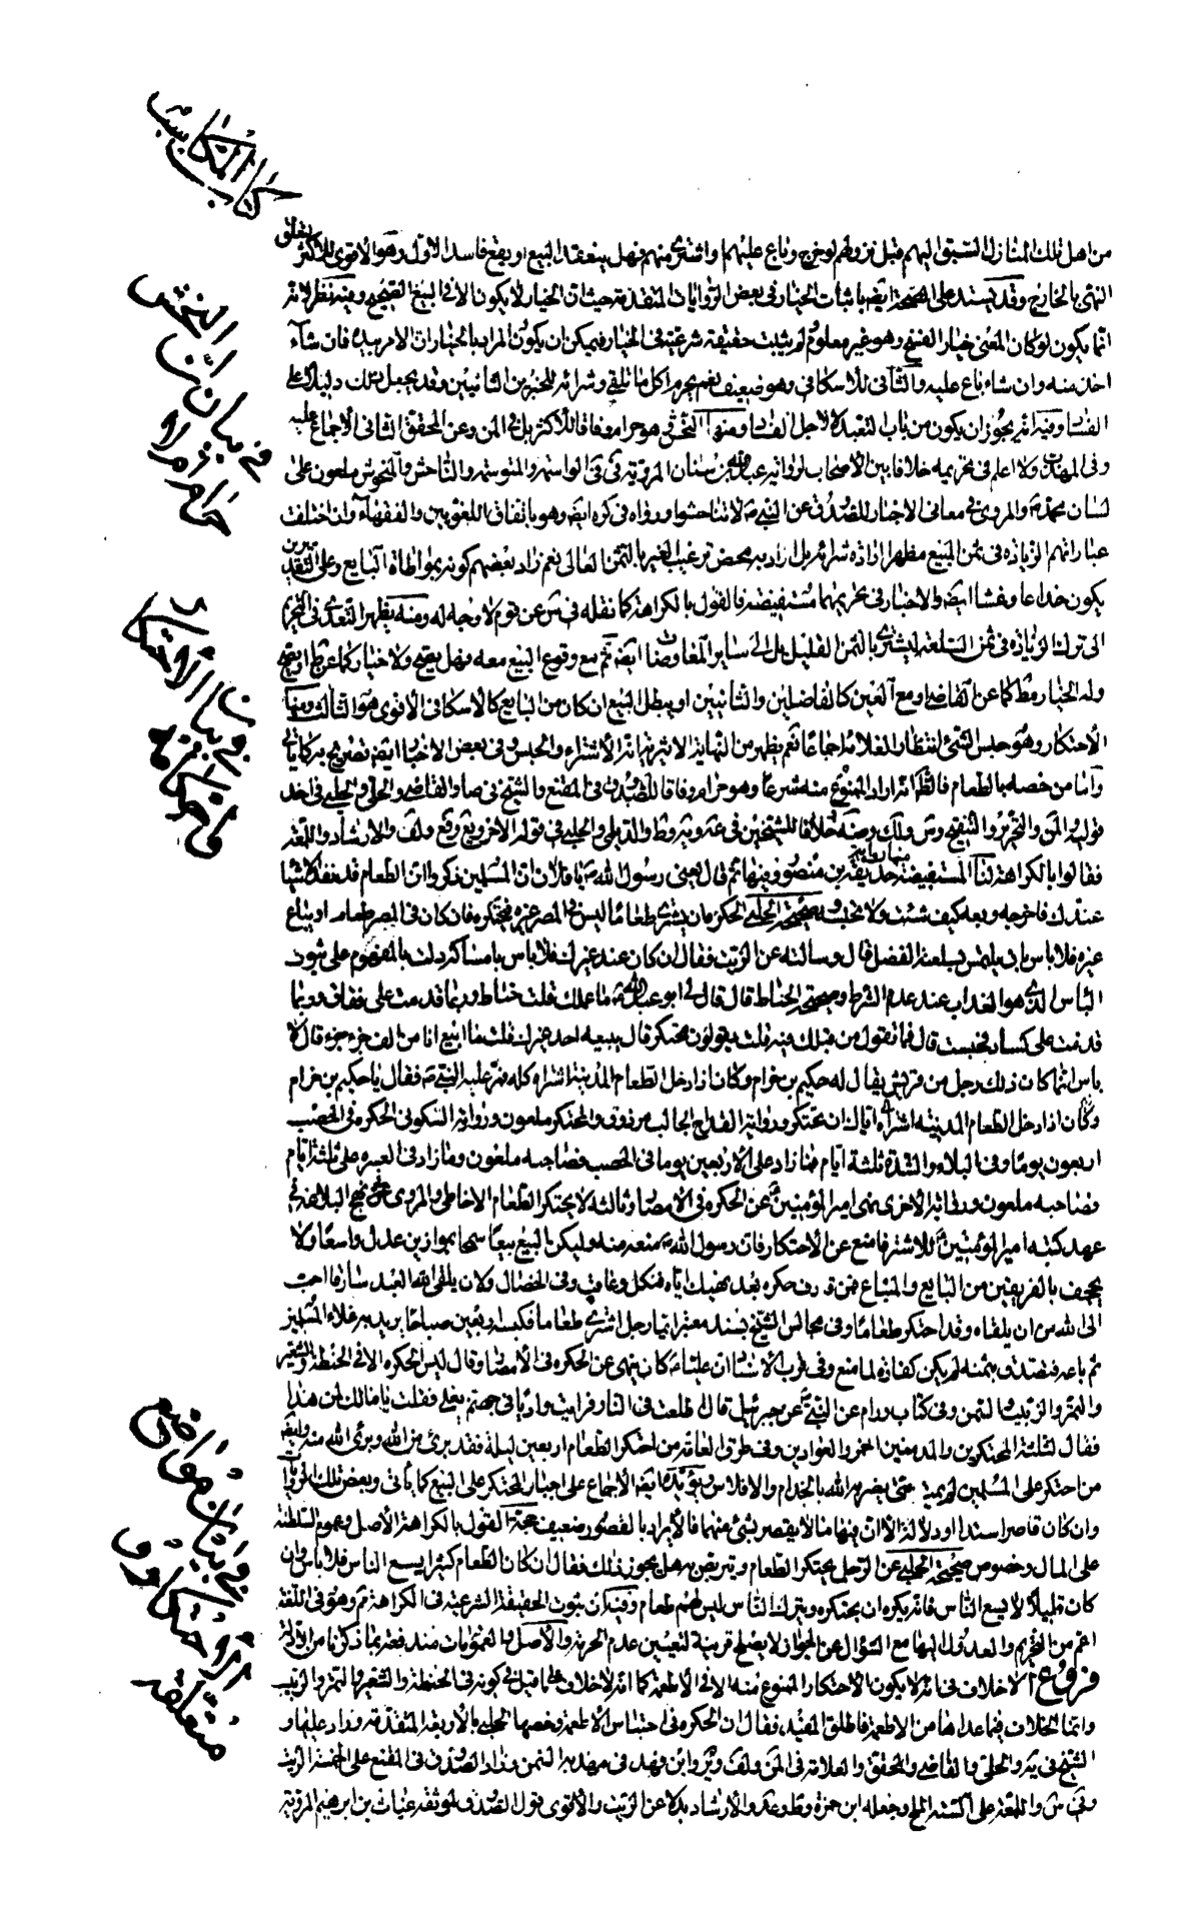 كتاب المكاسب
من اهل تلك المنازل السبق اليهم قبل نزولهم لو خرج وباع عليهم او اشترى منهم فهل ينعقد البيع او يقع فاسدا الاول وهو الاقوى للاكثر لتعلق
النهى بالخارج وقد يستند على الصحة ايضا باثبات الخيار في بعض الروايات المتقدمة حيث ان الخيار لا يكون الا في البيع الصحيح وفيه نظر لانه
انما يكون لو كان المعنى خيار الفسخ وهو غير معلوم لم يثبت حقيقة شرعية في الخيار فيمكن ان يكون المراد بالخيار ان الامر بيده فان شاء
اخذ منه وان شاء باع عليه والثاني للاسكافي وهو ضعيف نعم يحرم اكل ما تلقى وشرائه للخبرين الثانيين وقد يجعل ذلك دليلا على
الفساد وفيه انه يجوز ان يكون من باب التعبد لا لاجل الفساد ومنها النجش هو حرام وفاقا للاكثر بل في المن وعن المحقق الثاني الاجماع عليه
وفي المهذب ولا اعلم في تحريمه خلافا بين الاصحاب لرواية عبد الله بن سنان المروية في في الواشمة والموتشمة والناجش والمنجوش ملعون على
لسان محمد ص والمروي في معاني الاخبار للصدوق عن النبي ص لا تناجشوا ورواه في كره ايضا وهو باتفاق اللغويين والفقهاء وان اختلف
عباراتهم الزيادة في ثمن المبيع مظهرا ارادة شرائه بل اراد به محض ترغيب الغير بالثمن العالى نعم زاد بعضهم كونه بمواطاة البايع وعلى التقديرين
يكون خداعا وغشا ايضا والاخبار في تحريمهما مستفيضة فالقول بالكراهة كما نقله في س عن قوم لا وجه له ومنه يظهر التعدى في التحريم
الى ترك الزيادة في ثمن السلعة ليشترى بالثمن القليل بل الى ساير المعاوضات ايضا ثم مع وقوع البيع معه فهل يصح ولا خيار كما عن ط او يصح
وله الخيار مط كما عن القاضي او مع الغبن كالفاضلين والثانيين او يبطل البيع ان كان من البايع كالاسكافى الاقوى هو الثالث ومنها
الاحتكار وهو حبس الشئ انتظارا لغلائه اجماعا نعم يظهر من النهاية الاثيرية انه الاشتراء والحبس وفي بعض الاخبار ايضا تصريح به كما ياتي
واما من خصه بالطعام فالظاهر انه اراد الممنوع منه شرعا وهو حرام وفاقا للصدوق في المقنع والشيخ في صا والقاضي والحلى والحلبي في احد
قوليه والمن والتحرير والتنقيح وس ولك وضه خلافا للشيخين في عه ويه وط والديلمى والحلبى في قوله الاخر ويع وفع ولف والارشاد واللمعة
فقالوا بالكراهة لنا المستفيضة منها رواية حذيفة بن منصور وفيها ثم قال يعني رسول الله ص يا فلان ان المسلمين ذكروا ان الطعام قد نفد الا شيئا
عندك فاخرجه وبعه كيف شئت ولا تحبسه وصحيحة الحلبي الحكرة ان يشترى طعاما ليس في المصر غيره فيحتكره فان كان في المصر طعام او يباع
غيره فلا باس بان يلتمس بسلعته الفضل قال وسالته عن الزيت فقال ان كان عند غيرك فلا باس بامساكه دلت بالمفهوم على ثبوت
الباس الذى هو العذاب عند عدم الشرط وصحيحة الحناط قال قال لي ابو عبد الله ع ما عملك قلت حناط وربما قدمت على نفاق وربما
قدمت على كساد فحبست قال فما تقول من قبلك فيه قلت يقولون محتكر قال يبيعه احد غيرك قلت ما ابيع انا من الف جزء جزء قال لا
باس انما كان ذلك رجل من قريش يقال له حكيم بن حزام وكان اذا دخل الطعام المدينة اشتراه كله فمر عليه النبي ص فقال يا حكيم بن حزام
وكان اذا دخل الطعام المدينة اشتراه اياك ان تحتكر ورواية القداح الجالب مرزوق والمحتكر ملعون ورواية السكوني الحكرة في الخصب
اربعون يوما وفي البلاء والشدة ثلثة ايام فما زاد على الاربعين يوما في الخصب فصاحبه ملعون وما زاد في العسرة على ثلثة ايام
فصاحبه ملعون وروايته الاخرى نهى امير المؤمنين ع عن الحكرة في الامصار وثالثة لا يحتكر الطعام الا خاطئ والمروى في نهج البلاغة في
عهد كتبه امير المؤمنين ع للاشتر فامنع عن الاحتكار فان رسول الله ص منعه منه وليكن البيع بيعا سمحا بموازين عدل واسعا ولا
يجحف بالفريقين من البايع والمبتاع فمن قارف حكرة بعد نهيك اياه فنكل وعاقب وفي الخصال ولان يلقى الله العبد سارقا احب
الى الله من ان يلقاه وقد احتكر طعاما وفي مجالس الشيخ بسند معتبر ايما رجل اشترى طعاما فكبسه اربعين صباحا يريد به غلاء المسلمين
ثم باعه فتصدق بثمنه لم يكن كفارة لما صنع وفي قرب الاسناد ان عليا ع كان ينهى عن الحكرة في الامصار وقال ليس الحكرة الا في الحنطة والشعير
والتمر والزبيب والسمن وفي كتاب ورام عن النبي ص عن جبرئيل قال طلعت في النار فرايت واديا في جهنم يغلي فقلت يا مالك لمن هذا
فقال لثلثة المحتكرين والمدمنين الخمر والقوادين وفي طرق العامة من احتكر الطعام اربعين ليلة فقد برئ من الله وبرئ الله منه وايضا
من احتكر على المسلمين لم يمت حتى يضربه الله بالجذام والافلاس ويؤيده ايضا الاجماع على اجبار المحتكر على البيع كما ياتى وبعض تلك الروايات
وان كان قاصرا سندا او دلالة الا ان فيها ما لا يقصر بشئ منهما فالايراد بالقصور ضعيف حجة القول بالكراهة الاصل وعموم السلطنة
على المال وخصوص صحيحة الحلبي عن الرجل يحتكر الطعام ويتربص به هل يجوز ذلك فقال ان كان الطعام كثيرا يسع الناس فلا باس وان
كان قليلا لا يسع الناس فانه يكره ان يحتكره ويترك الناس ليس لهم طعام وفيه ان ثبوت الحقيقة الشرعية في الكراهة ثم وهو في اللغة
اعم من التحريم والعدول اليها مع السؤال عن الجواز لا يصلح قرينة لتعيين عدم الحرمة والاصل والعمومات مندفعة بما ذكرنا من الادلة
فروع ا لا خلاف في انه لا يكون الاحتكار الممنوع منه الا في الاطعمة كما انه لا خلاف على ما قيل في كونه في الحنطة والشعير والتمر والزبيب
وانما الخلاف فيما عداها من الاطعمة فاطلق المفيد فقال ان الحكرة في احتباس الاطعمة وخصها الحلبى بالاربعة المتقدمة وزاد عليها و
الشيخ في يه والحلى والقاضي والمحقق والعلامة في المن ولف وير وابن فهد في مهذبه السمن وزاد الصدوق في المقنع على الخمسة الزيت
وفي س واللمعة على الستة الملح وجعله ابن حمزة وط وعد والارشاد بدلا عن الزيت والاقوى قول الصدوق لموثقة غياث بن ابرهيم المروية
في بيان ان النجش حرام ام لا
في بيان الاحتكار
في بيان مواضع الاحتكار و متعلقه